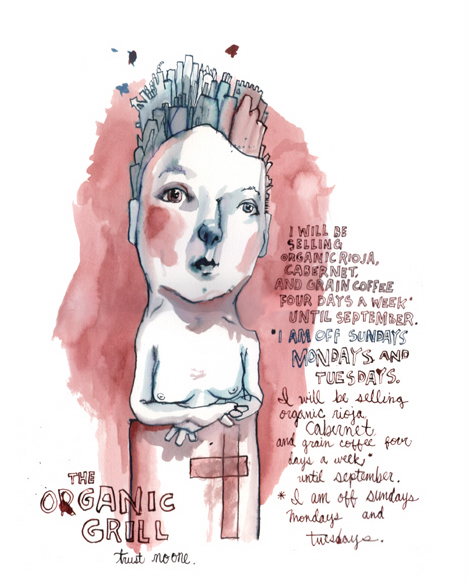 I WILL BE
SELLING
ORGANIC RIOJA,
CABERNET,
AND GRAIN COFFEE
FOUR DAYS A WEEK*
UNTIL SEPTEMBER.
*I AM OFF SUNDAYS
MONDAYS AND
TUESDAYS.
I will be selling
organic rioja,
Cabernet,
and grain coffee four
days a week*
until september.
* I am off sundays
mondays and
tuesdays.
THE
ORGANIC
GRILL
trust no one.